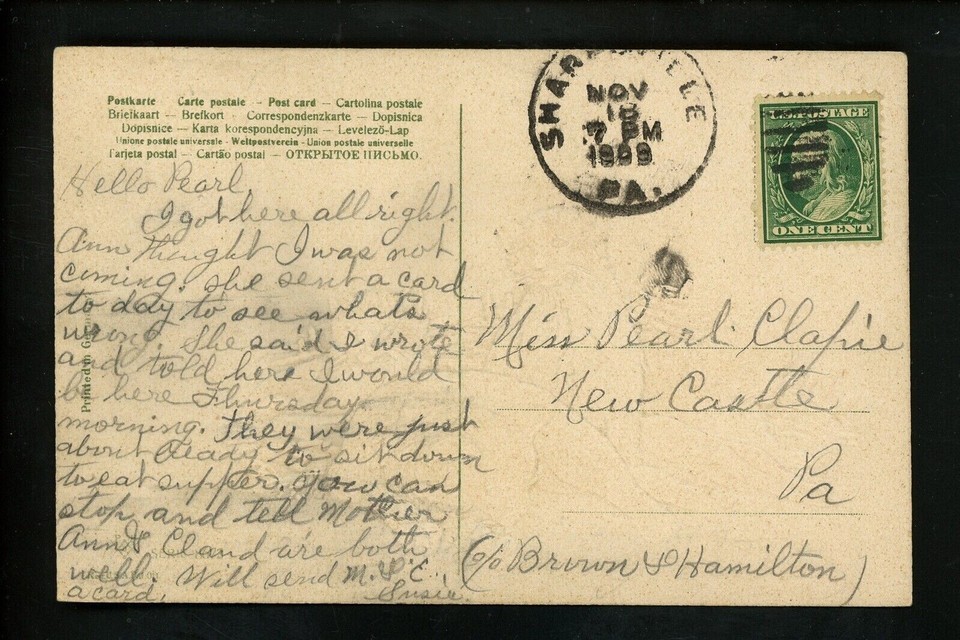 Postkarte Carte postale – Post card – Cartolina postale
Briefkaart – Brefkort – Correspondenzkarte – Dopisnica
Dopisnice – Karta korespondencyjna – Levelező-Lap
Unione postale universale - Weltpostverein - Union postale universelle
Tarjeta postal – Cartão postal – ОТКРЫТОЕ ПИСЬМО.
Hello Pearl
I got here all right.
Ann thought I was not
coming. she sent a card
to day to see whats
wrong. She said I wrote
and told here I would
be here Thursday
morning. They were just
about ready to sit down
to eat supper. you can
stop and tell Mother
Ann & Cland are both
well. Will send M. & C.
a card. Susie.
Printed in
SHARPSVILLE
NOV
18
7 PM
1909
PA.
U.S. POSTAGE
ONE CENT
Miss Pearl Clafie
New Castle
Pa
(c/o Brown & Hamilton)